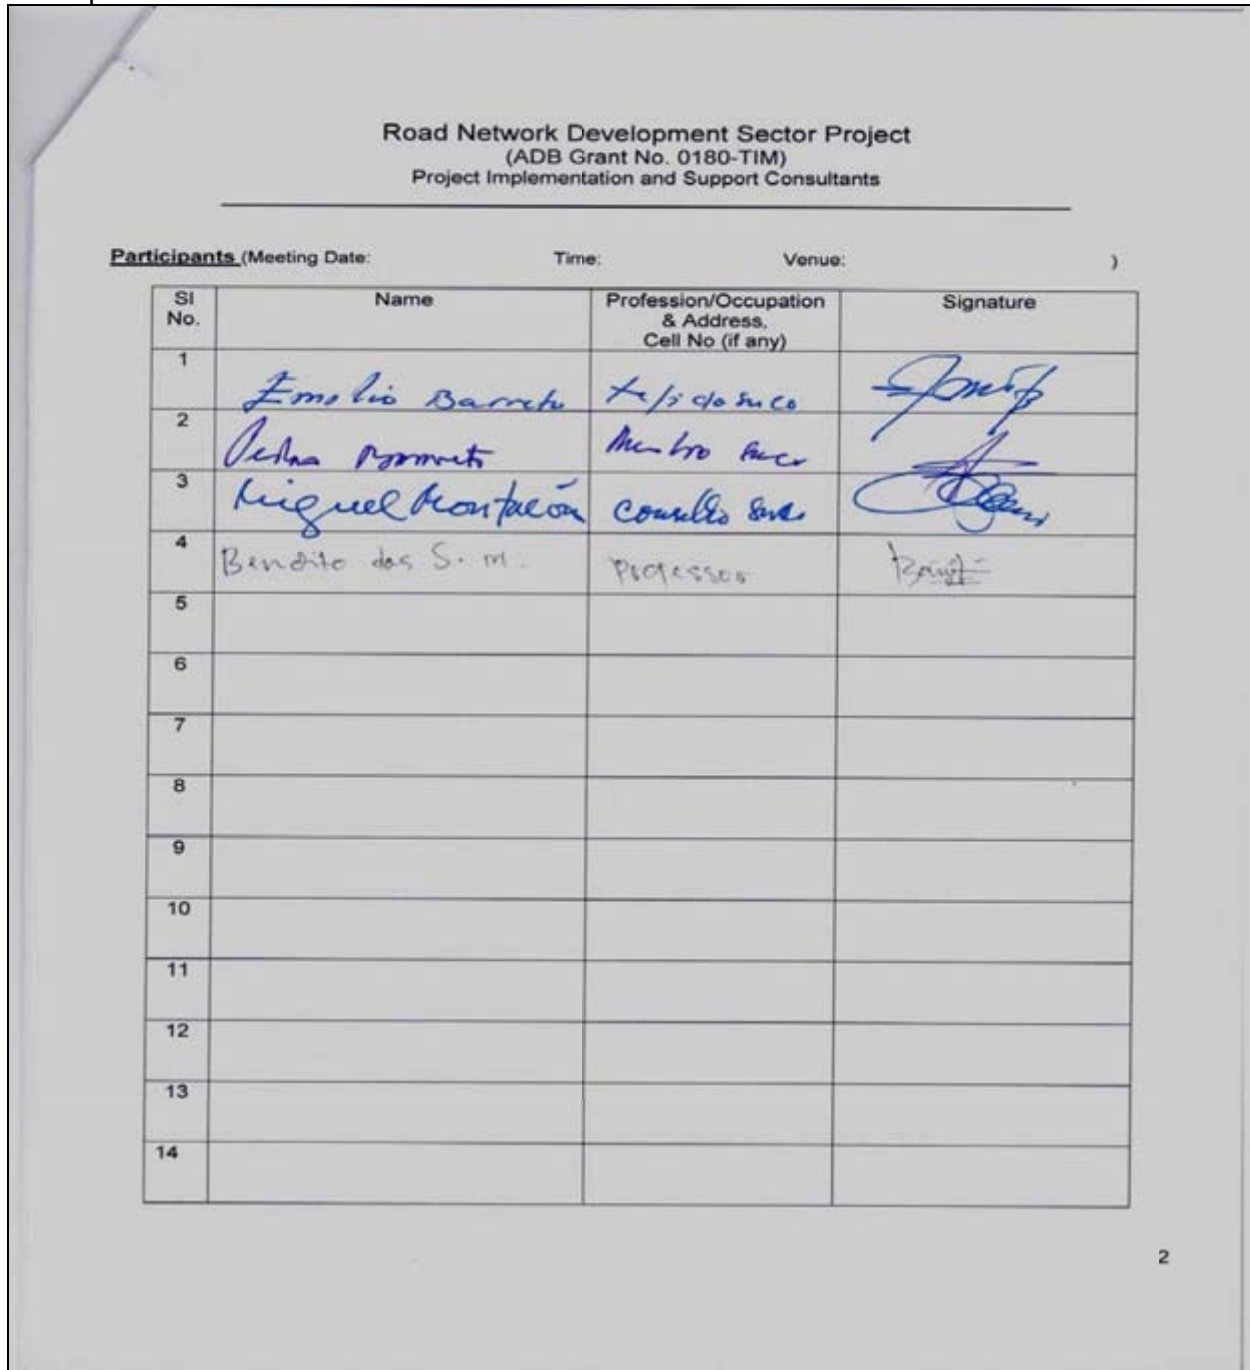 Road Network Development Sector Project
(ADB Grant No. 0180-TIM)
Project Implementation and Support Consultants
Participants (Meeting Date: Time: Venue: )
Sl No. Name Profession/Occupation & Address, Cell No (if any) Signature
1 Emilio Barreto suco
2 suco
3 Miguel
4 Bendito das S. M. Professor
5
6
7
8
9
10
11
12
13
14
2